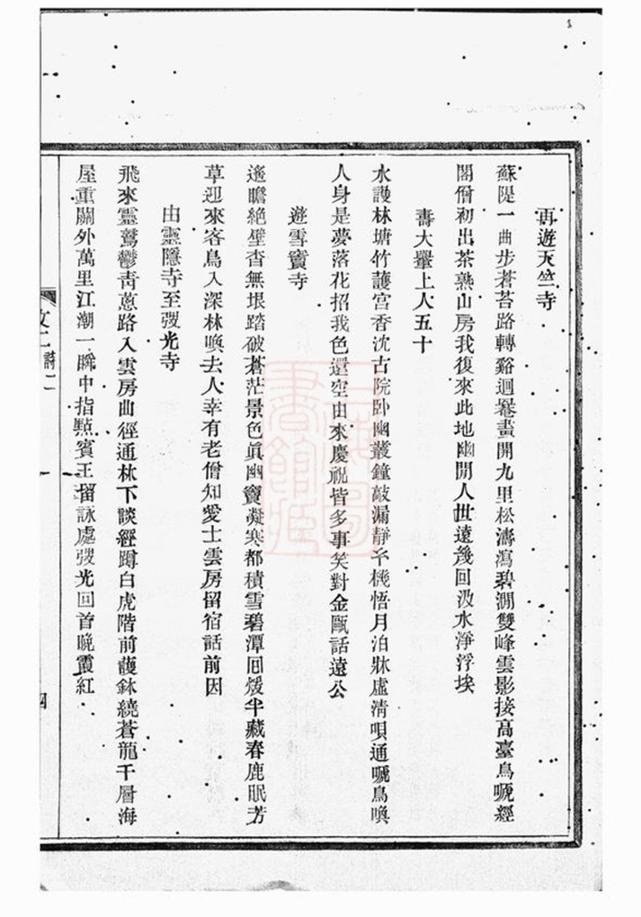 再遊天竺寺
蘇隄一曲步蒼苔路轉谿迴菴畫開九里松濤瀉碧澗雙峰雲影接高臺鳥唬經
閣僧初出茶熟山房我復來此地幽閒人世遠幾回汲水淨浮埃
壽大轝上人五十
水護林塘竹護宮香沈古院卧幽叢鐘敲漏靜千機悟月泊牀虛清唄通唬鳥喚
人身是夢落花招我色還空由來慶祝皆多事笑對金甌話遠公
遊雪竇寺
遙瞻絕壁杳無垠踏破蒼茫景色眞幽竇凝寒都積雪碧潭囘煖半藏春鹿眠芳
草迎來客鳥入深林喚去人幸有老僧知愛士雲房留宿話前因
由靈隱寺至弢光寺
飛來靈鷲鬱靑蔥路入雲房曲徑通林下談經蹲白虎階前護鉢繞蒼龍千層海
屋重關外萬里江潮一瞬中指點賓王留詠處弢光回首晩霞紅
詩二
四